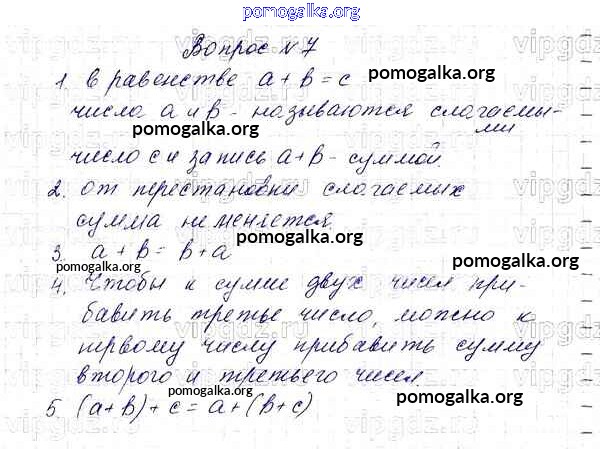 pomogalka.org
Вопрос №7
1. В равенстве a + b = c
pomogalka.org
числа a и b - называются слагаемы-
ми
pomogalka.org
число c и запись a+b - суммой.
2. От перестановки слагаемых
сумма не меняется.
pomogalka.org
3. a + b = b + a
pomogalka.org
pomogalka.org
4. Чтобы к сумме двух чисел при-
бавить третье число, можно к
первому числу прибавить сумму
второго и третьего чисел
pomogalka.org
pomogalka.org
5. (a+b)+c = a+(b+c)